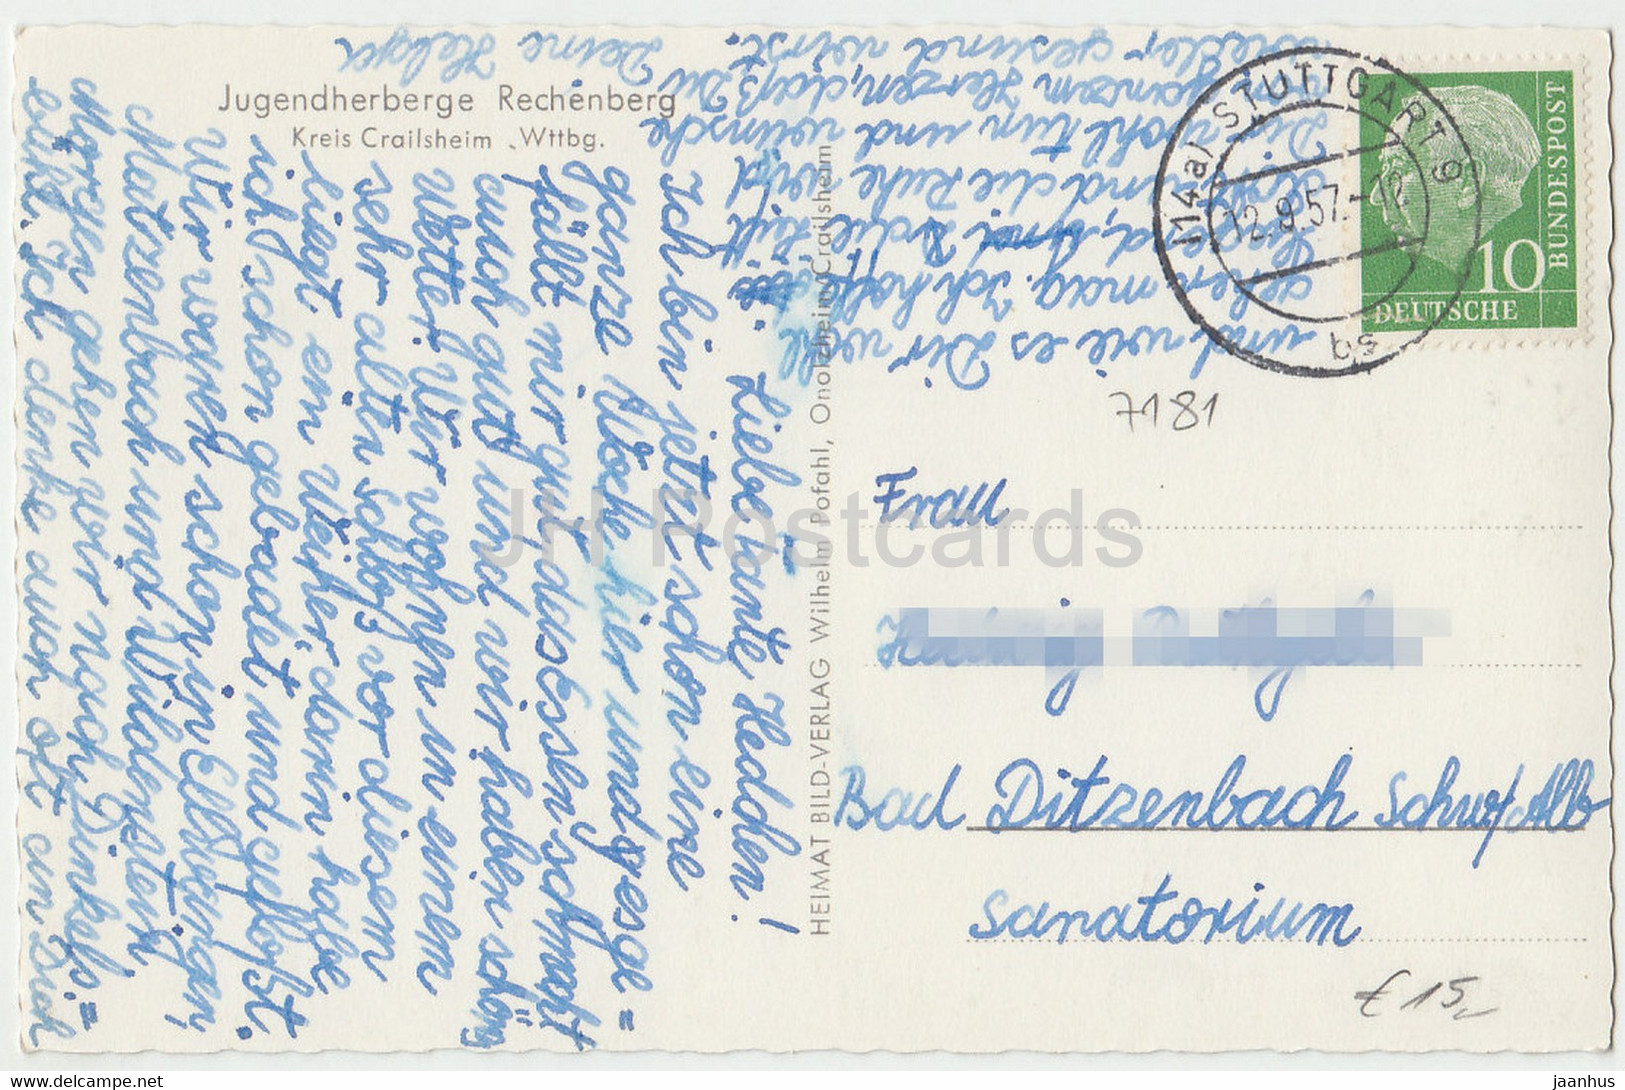 Jugendherberge Rechenberg
Kreis Crailsheim Wttbg.
HEIMAT BILD-VERLAG Wilhelm Pofahl, Onolzheim-Crailsheim
Liebe Tante Hedden!
Ich bin jetzt schon eine
ganze Woche hier und es ge=
fällt mir gut. das Essen schmeckt
auch gut und wir haben schön
Wetter. Wir wohnen in einem
sehr alten Schloß vor diesem
liegt ein Weiher, darin habe
ich schon gebadet und geflößt.
Wir waren schon in Ellwangen,
Matzenbach und Wildenstein
Morgen gehen wir nach Dinkels=
bühl. Ich denke auch oft an Dich
und wie es Dir wohl
gehen mag. Ich hoffe
die Luft
und die Ruhe wird
Dir wohl tun und wünsche
ganzem Herzen, daß Du
wieder gesund wirst.
Deine Helga
(14a) STUTTGART 9
12.9.57.-12
bs
DEUTSCHE
BUNDESPOST
10
7181
Frau
Bad Ditzenbach Schw/Alb
Sanatorium
€ 15,-
JH Postcards
www.delcampe.net
jaanhus